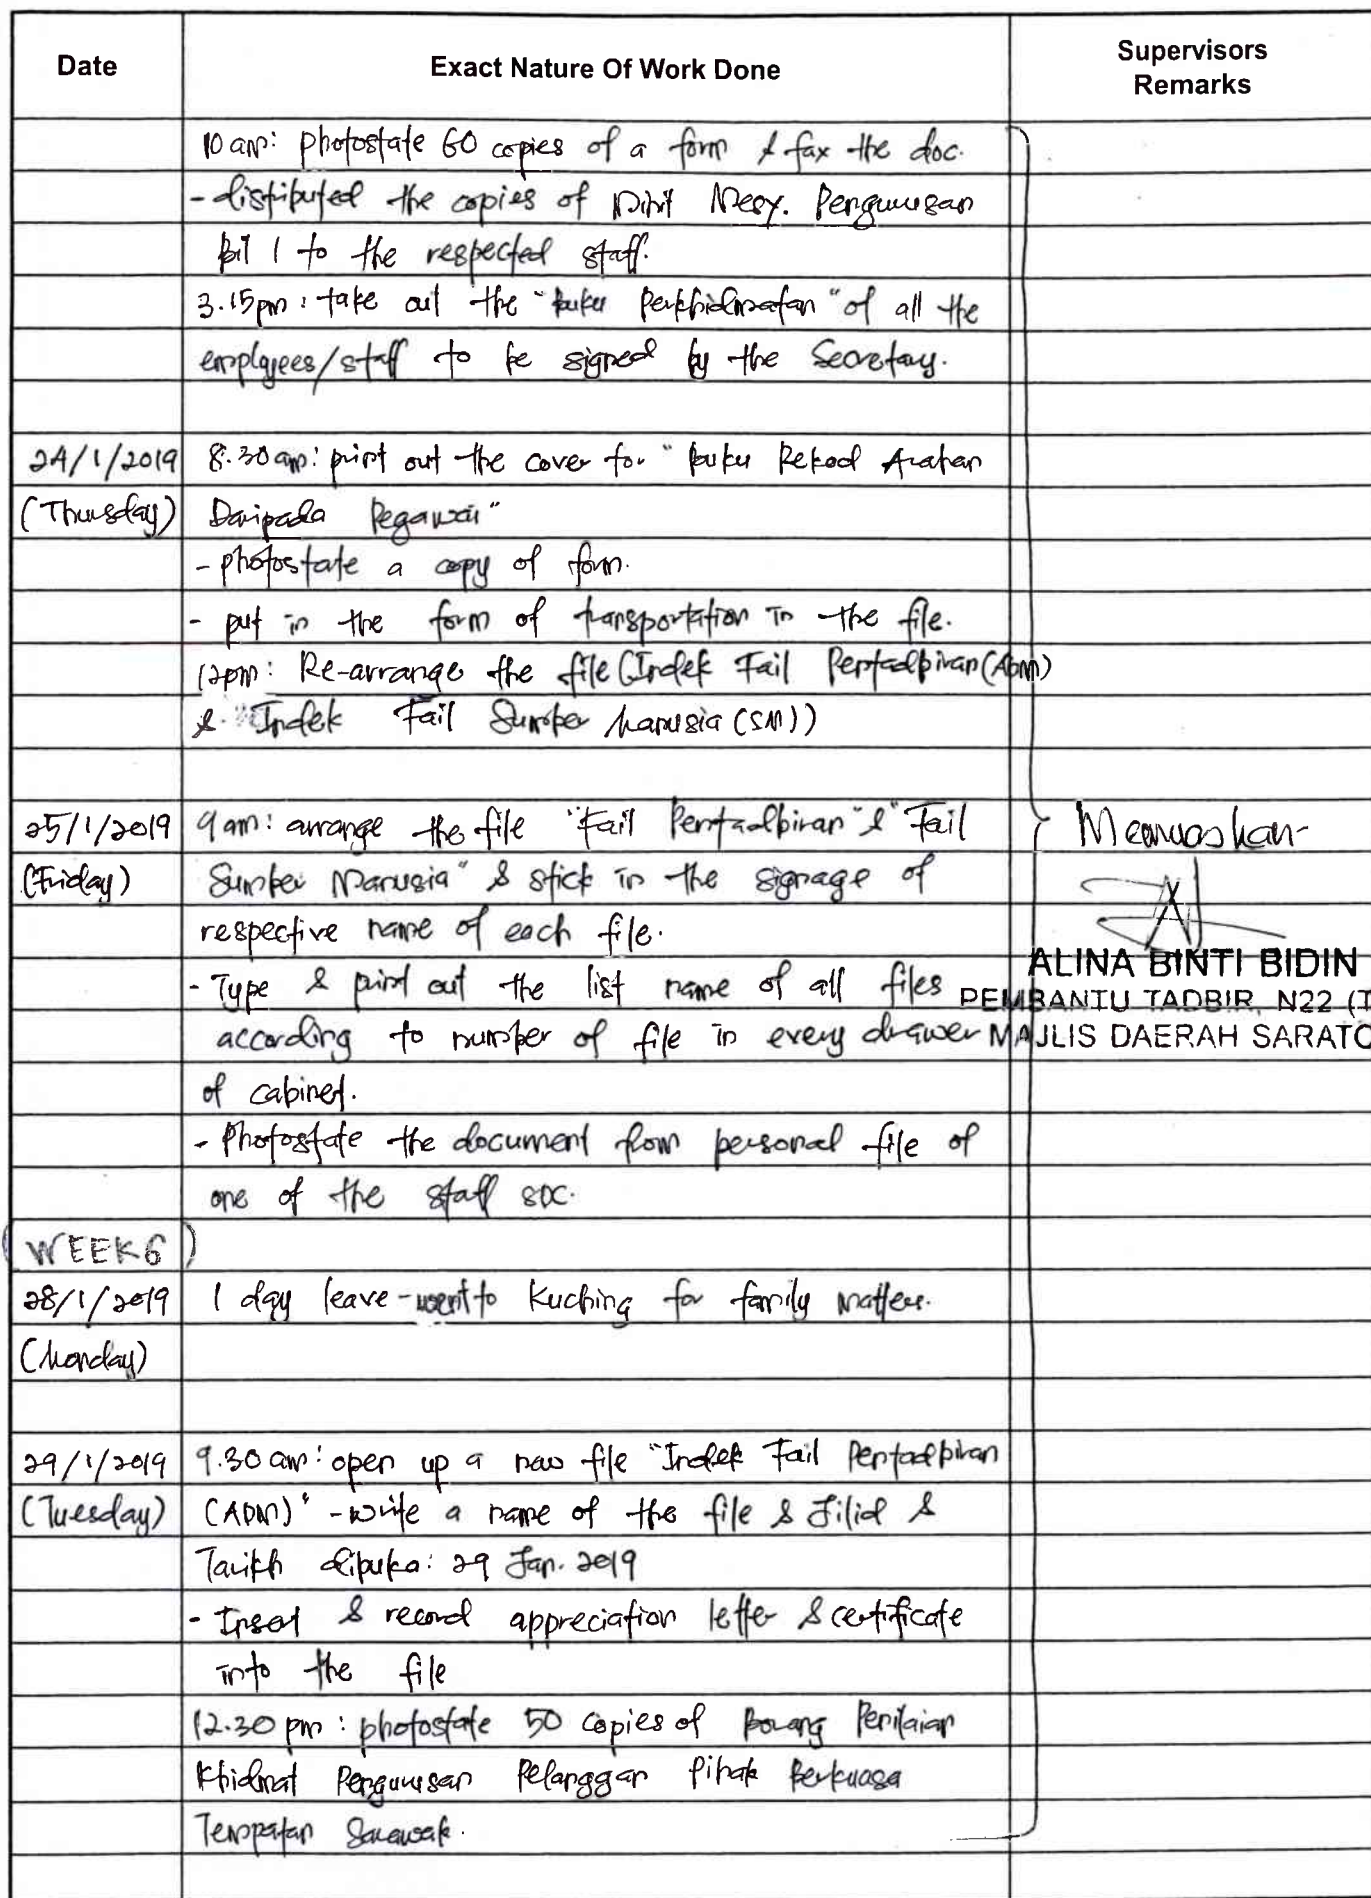 Date Exact Nature Of Work Done Supervisors
Remarks
10 am: photostate 60 copies of a form & fax the doc.
- distributed the copies of Minit Mesy. Pengurusan
bil 1 to the respected staff.
3.15pm: take out the "buku Perkhidmatan" of all the
employees/staff to be signed by the Secretary.
24/1/2019 8.30 am: print out the cover for "buku Rekod Arahan
(Thursday) Daripada Pegawai"
- photostate a copy of form.
- put in the form of transportation in the file.
12pm: Re-arrange the file (Indek Fail Pentadbiran (ADM)
& Indek Fail Sumber Manusia (SM))
25/1/2019 9 am: arrange the file "Fail Pentadbiran" & "Fail Memuaskan
(Friday) Sumber Manusia" & stick in the signage of
respective name of each file.
ALINA BINTI BIDIN
- Type & print out the list name of all files PEMBANTU TADBIR, N22 (T
according to number of file in every drawer MAJLIS DAERAH SARATO
of cabinet.
- Photostate the document from personal file of
one of the staff SDC.
(WEEK 6)
28/1/2019 1 day leave - went to Kuching for family matters.
(Monday)
29/1/2019 9.30 am: open up a new file "Indek Fail Pentadbiran
(Tuesday) (ADM)" - write a name of the file & Jilid &
Tarikh dibuka: 29 Jan. 2019
- Insert & record appreciation letter & certificate
into the file
12.30 pm: photostate 50 copies of Borang Penilaian
Khidmat Pengurusan Pelanggan Pihak Berkuasa
Tempatan Sarawak.